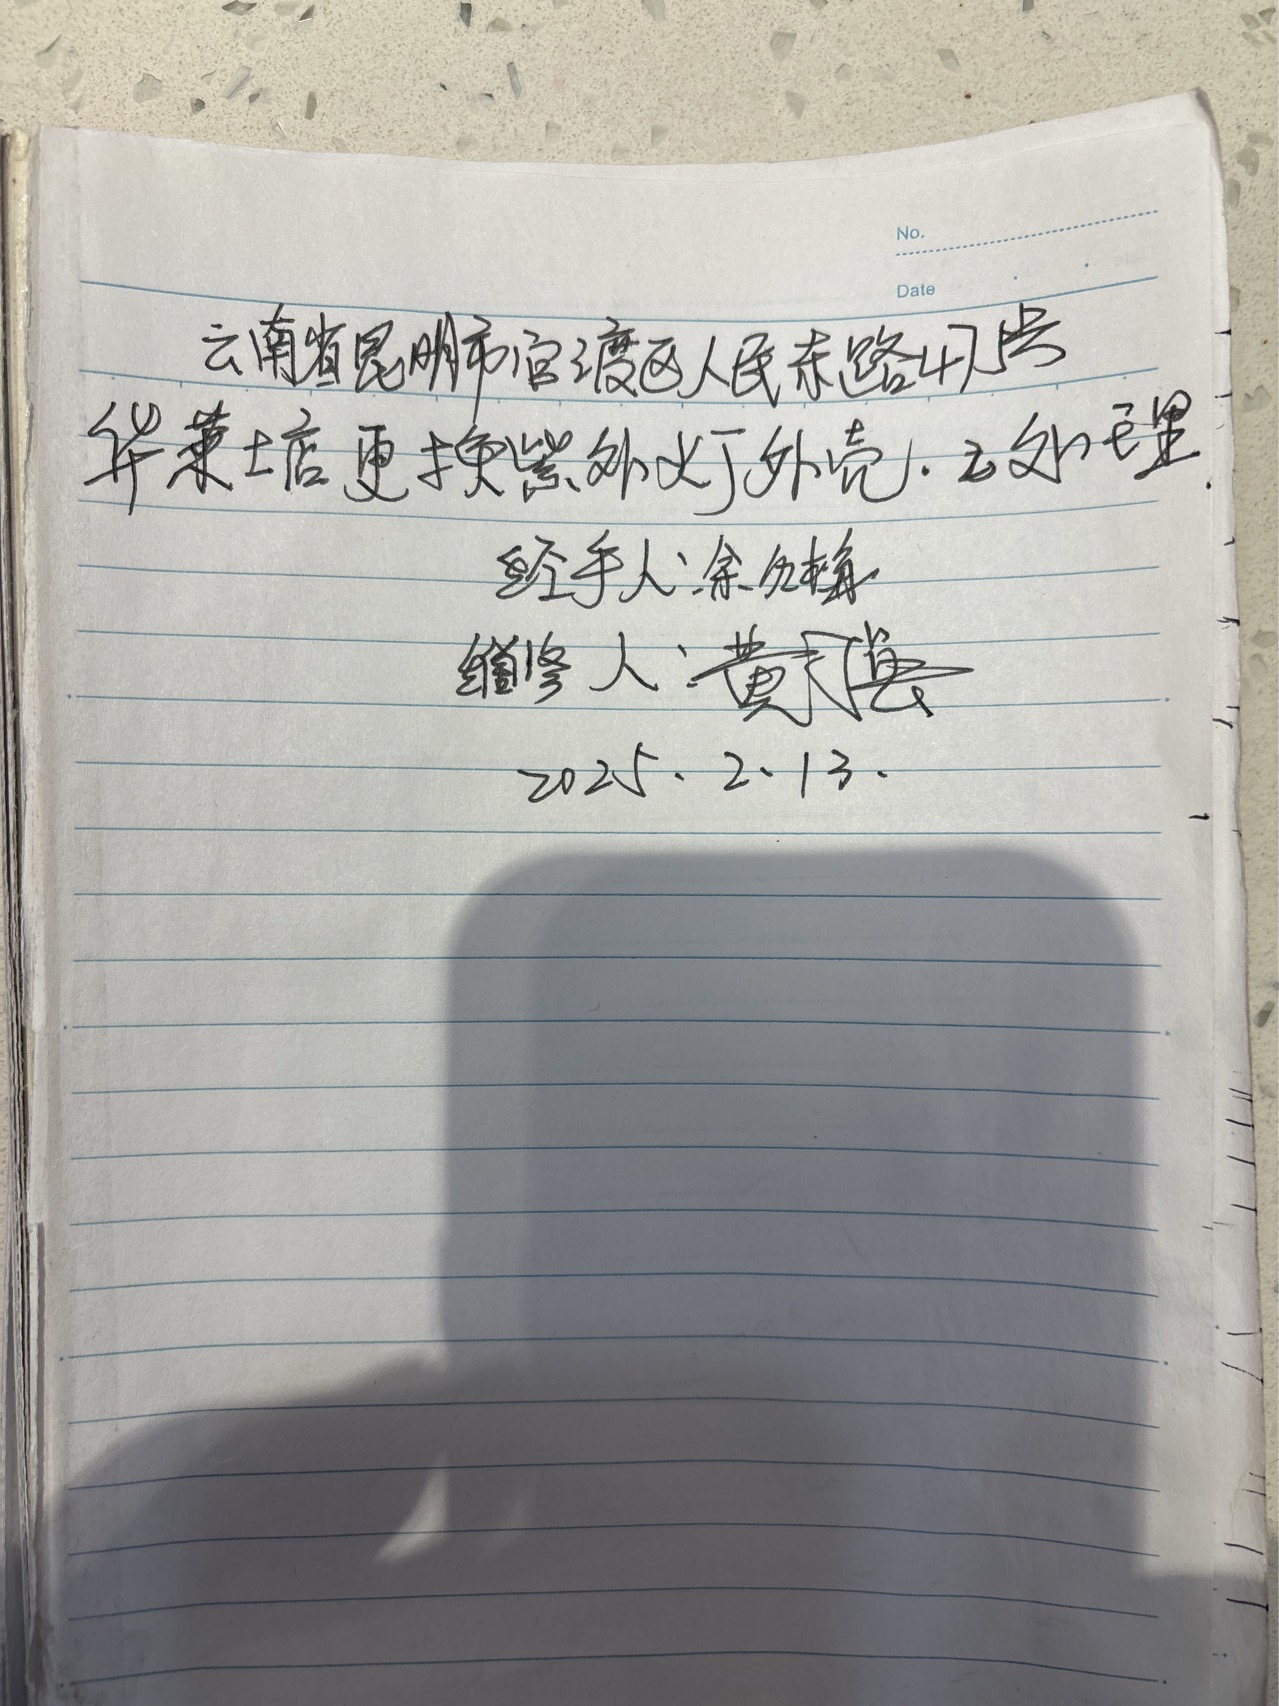 No.
Date
云南省昆明市官渡区人民东路47号
华莱士店更换紫外灯外壳.已处理.
经手人:余
维修人:黄
2025.2.13.